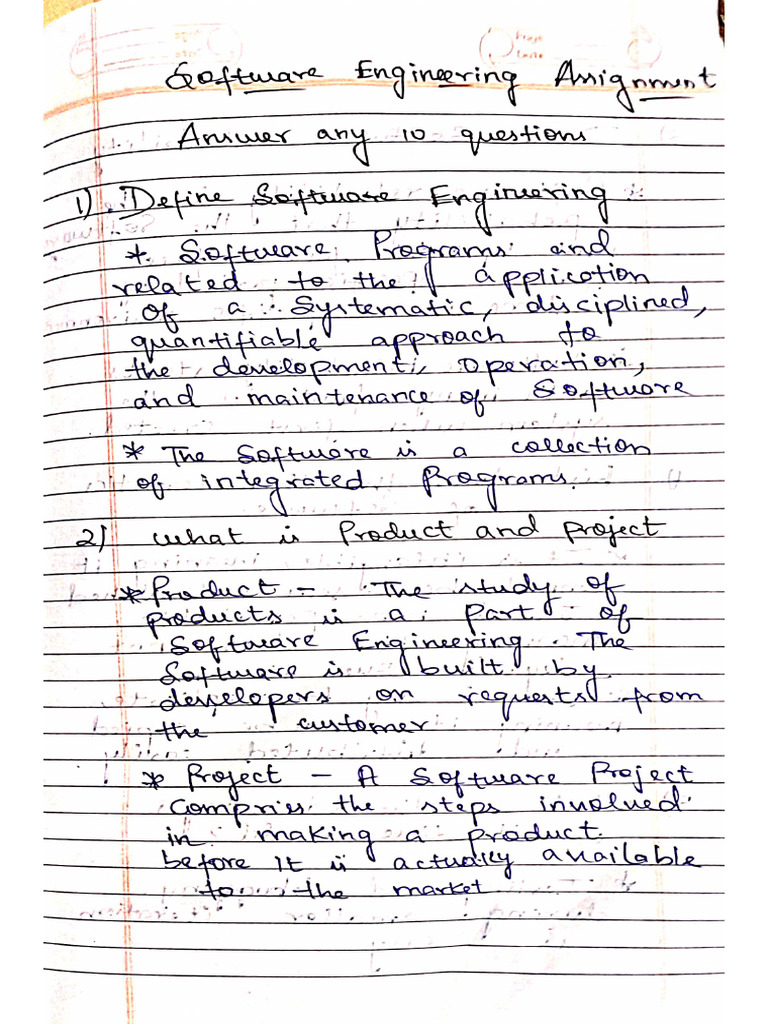 Software Engineering Assignment
Answer any 10 questions
1) Define Software Engineering
* Software Programs and
related to the application
of a Systematic, disciplined,
quantifiable approach to
the development, operation,
and maintenance of Software
* The Software is a collection
of integrated Programs.
2) what is Product and Project
* Product - The study of
products is a part of
Software Engineering. The
Software is built by
developers on requests from
the customer
* Project - A Software Project
Compries the steps involved
in making a product
before it is actually available
to the market